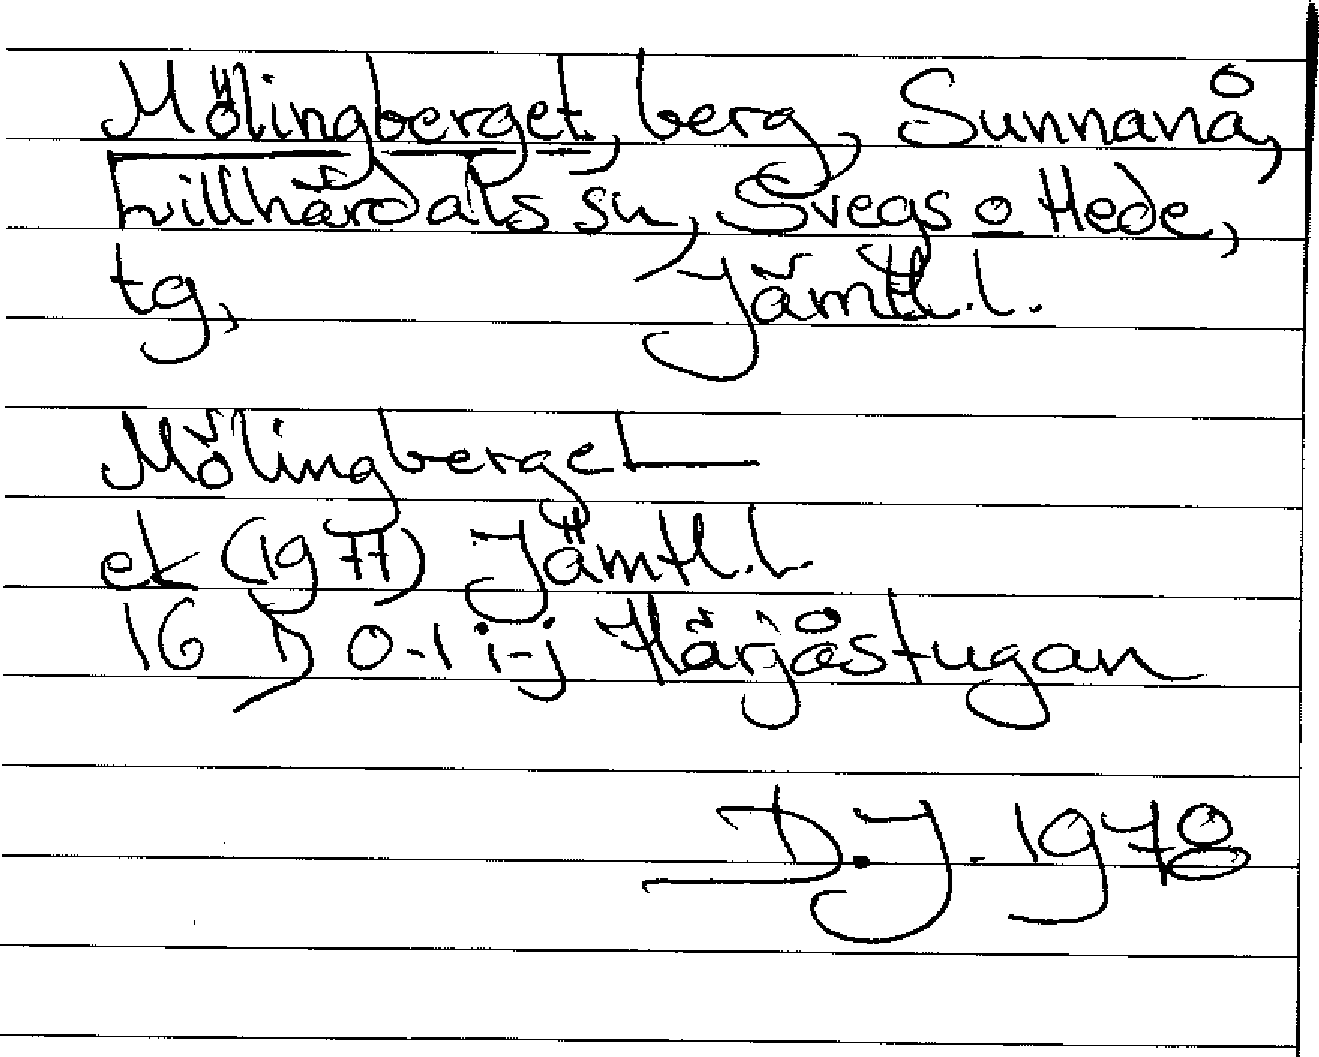 Mölingberget, berg, Sunnanå,
Lillhärdals sn, Svegs o Hede,
tg, Jämtl.l.
Mölingberget
ek (1977) Jämtl.l.
16 D 0-1 i-j Härjåstugan
D.J. 1978